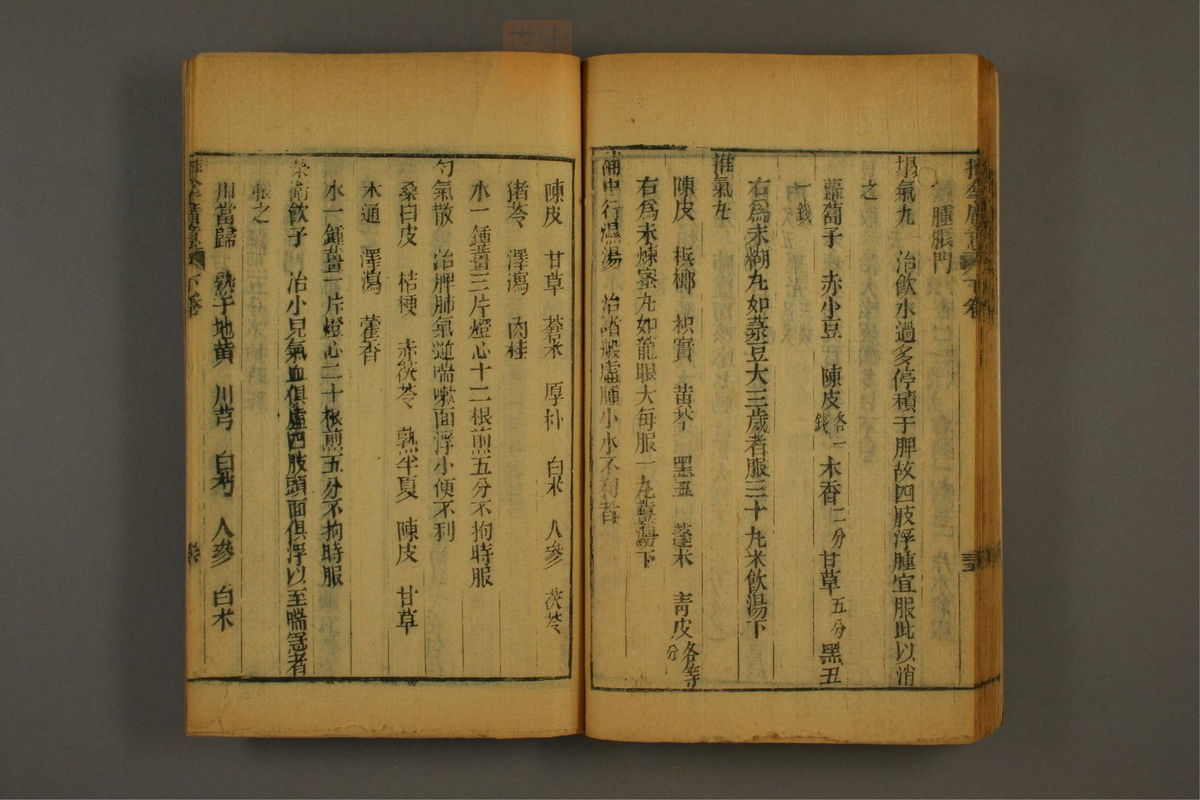 腫脹門
塌氣丸　治飲水過多停積于脾故四肢浮腫宜服此以消
之
蘿蔔子　赤小豆　陳皮各一錢　木香二分　甘草五分　黑丑
一錢
右爲末糊丸如菉豆大三歲者服三十丸米飲湯下
推氣丸
陳皮　檳榔　枳實　黃芩　黑丑　蓬朮　青皮各等分
右爲末煉蜜丸如龍眼大每服一丸薑湯下
補中行濕湯　治諸般虛腫小水不利者
陳皮　甘草　蒼朮　厚朴　白朮　人參　茯苓
猪苓　澤瀉　肉桂
水一鍾薑三片燈心十二根煎五分不拘時服
勻氣散　治脾肺氣逆喘嗽面浮小便不利
桑白皮　桔梗　赤茯苓　熟半夏　陳皮　甘草
木通　澤瀉　藿香
水一鍾薑一片燈心二十根煎五分不拘時服
榮衛飲子　治小兒氣血俱虛四肢頭面俱浮以至喘急者
服之
川當歸　熟干地黃　川芎　白芍　人參　白朮